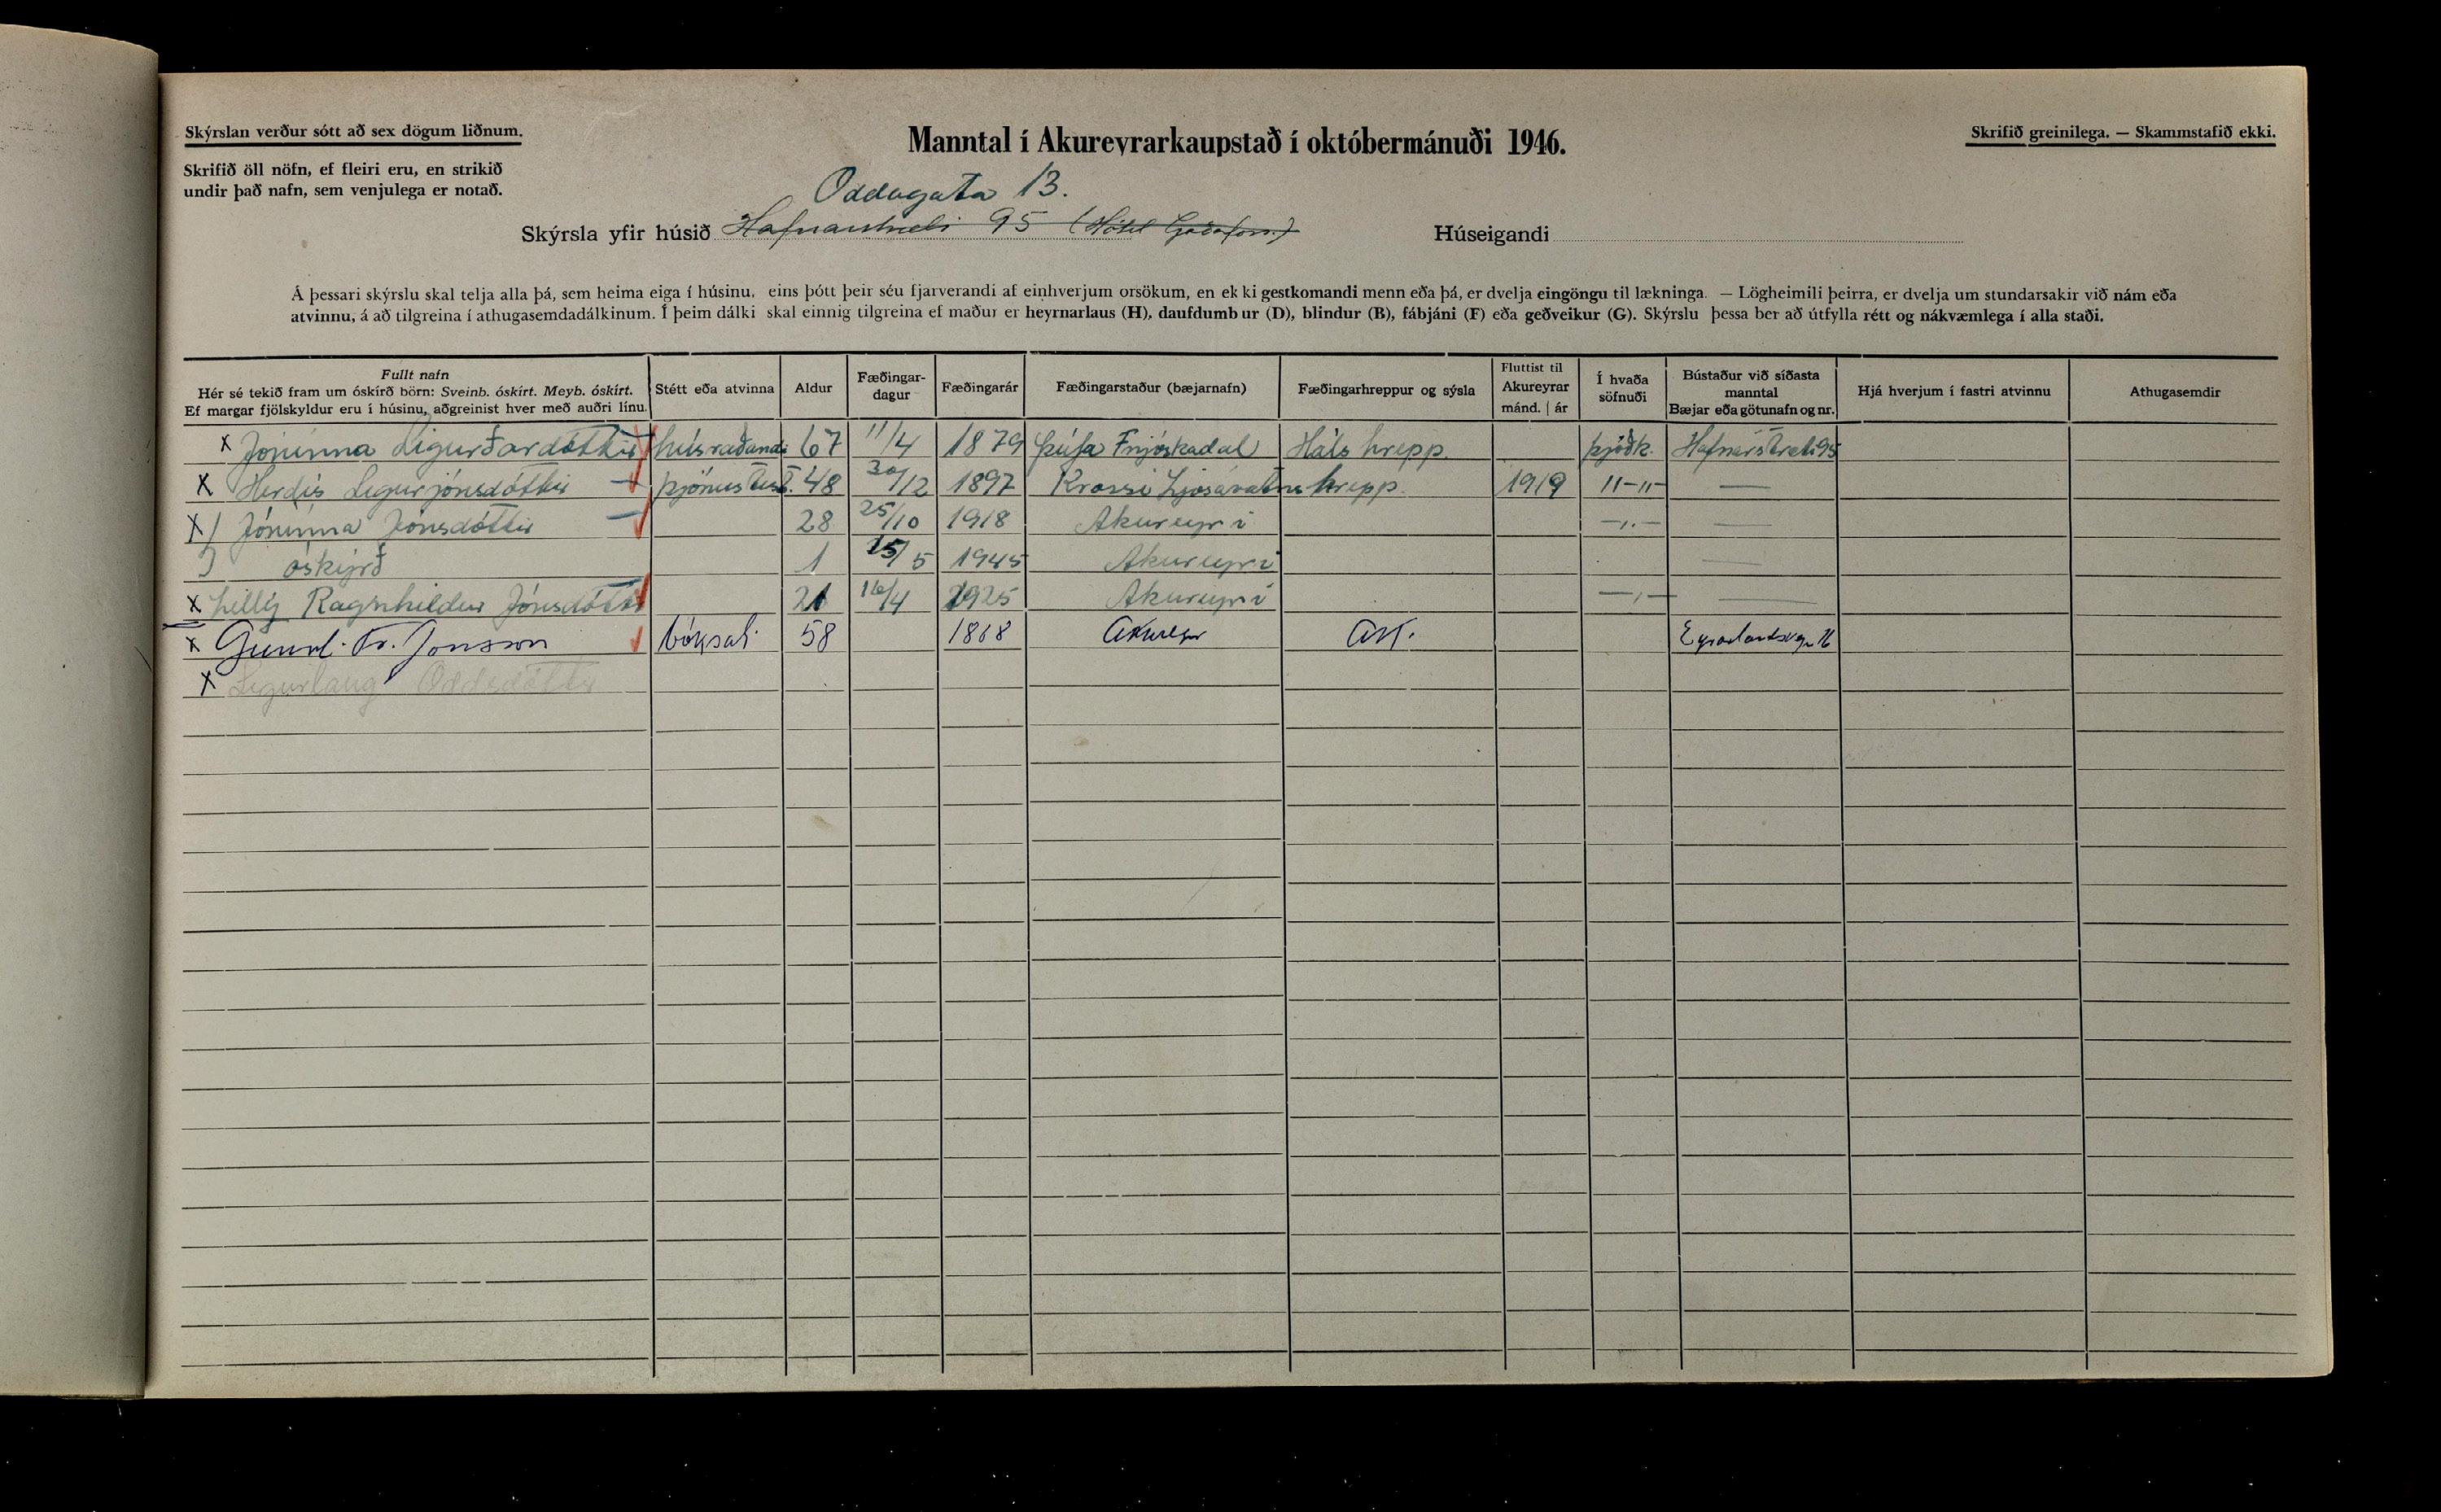 Skýrslan verður sótt að sex dögum liðnum.
Skrifið öll nöfn, ef fleiri eru, en strikið
undir það nafn, sem venjulega er notað.
Manntal í Akureyrarkaupstað í októbermánuði 1946.
Skrifið greinilega. — Skammstafið ekki.
Oddagata 13.
Skýrsla yfir húsið Hafnarstræti 95 (Hótel Goðafoss) Húseigandi
Á þessari skýrslu skal telja alla þá, sem heima eiga í húsinu, eins þótt þeir séu fjarverandi af einhverjum orsökum, en ekki gestkomandi menn eða þá, er dvelja eingöngu til lækninga. — Lögheimili þeirra, er dvelja um stundarsakir við nám eða
atvinnu, á að tilgreina í athugasemdadálkinum. Í þeim dálki skal einnig tilgreina ef maður er heyrnarlaus (H), daufdumbur (D), blindur (B), fábjáni (F) eða geðveikur (G). Skýrslu þessa ber að útfylla rétt og nákvæmlega í alla staði.
Fullt nafn
Hér sé tekið fram um óskírð börn: Sveinb. óskírt. Meyb. óskírt.
Ef margar fjölskyldur eru í húsinu, aðgreinist hver með auðri línu.
Stétt eða atvinna
Aldur
Fæðingar-
dagur
Fæðingarár
Fæðingarstaður (bæjarnafn)
Fæðingarhreppur og sýsla
Fluttist til
Akureyrar
mánd. | ár
Í hvaða
söfnuði
Bústaður við síðasta
manntal
Bæjar eða götunafn og nr.
Hjá hverjum í fastri atvinnu
Athugasemdir
x Jónínna Sigurðardóttir húsráðandi 67 11/4 1879 Þúfa Fnjóskadal Háls hrepp. þjóðk. Hafnarstræti 95
x Herdís Sigurjónsdóttir þjónustust. 48 30/12 1897 Krossi Ljósavatns hrepp. 1919 11-11- —
x) Jónínna Jónsdóttir 28 25/10 1918 Akureyri —,,— —
óskýrð 1 15/5 1945 Akureyri —
x Lillý Ragnhildur Jónsdóttir 21 16/4 1925 Akureyri —,— —
x Gunnl. Tr. Jónsson bóksali 58 1888 Akureyr Ak. Eyrarlandsveg 16
x Sigurlaug Oddsdóttir